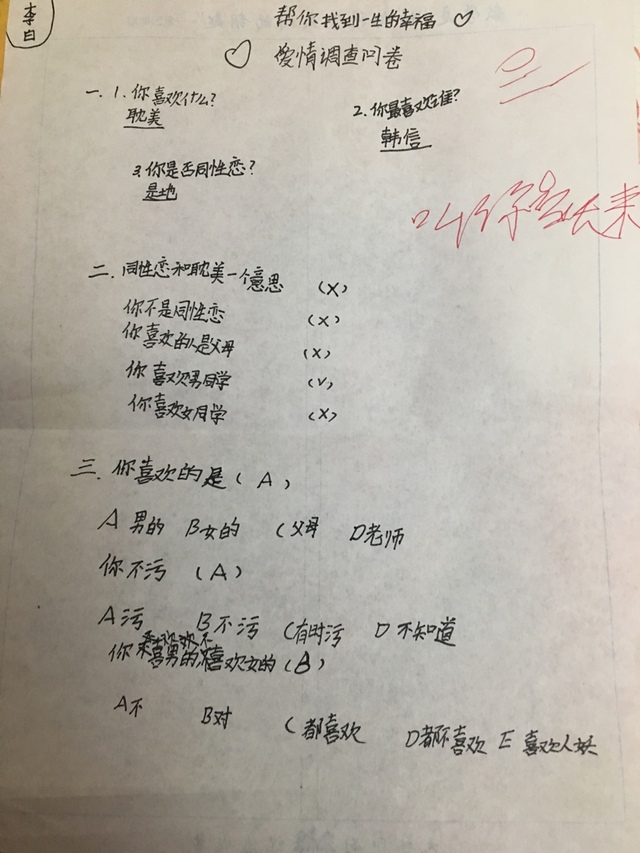 李白
帮你找到一生的幸福
爱情调查问卷
一. 1. 你喜欢什么? 2. 你最喜欢谁?
耽美 韩信
3. 你是否同性恋?
是地
叫你家长来
二. 同性恋和耽美一个意思 (X)
你不是同性恋 (X)
你喜欢的人是父母 (X)
你喜欢男同学 (√)
你喜欢女同学 (X)
三. 你喜欢的是 (A)
A 男的 B 女的 C 父母 D 老师
你不污 (A)
A 污 B 不污 C 有时污 D 不知道
你喜男的不喜欢女的 (B)
A 不 B 对 C 都喜欢 D 都不喜欢 E 喜欢人妖